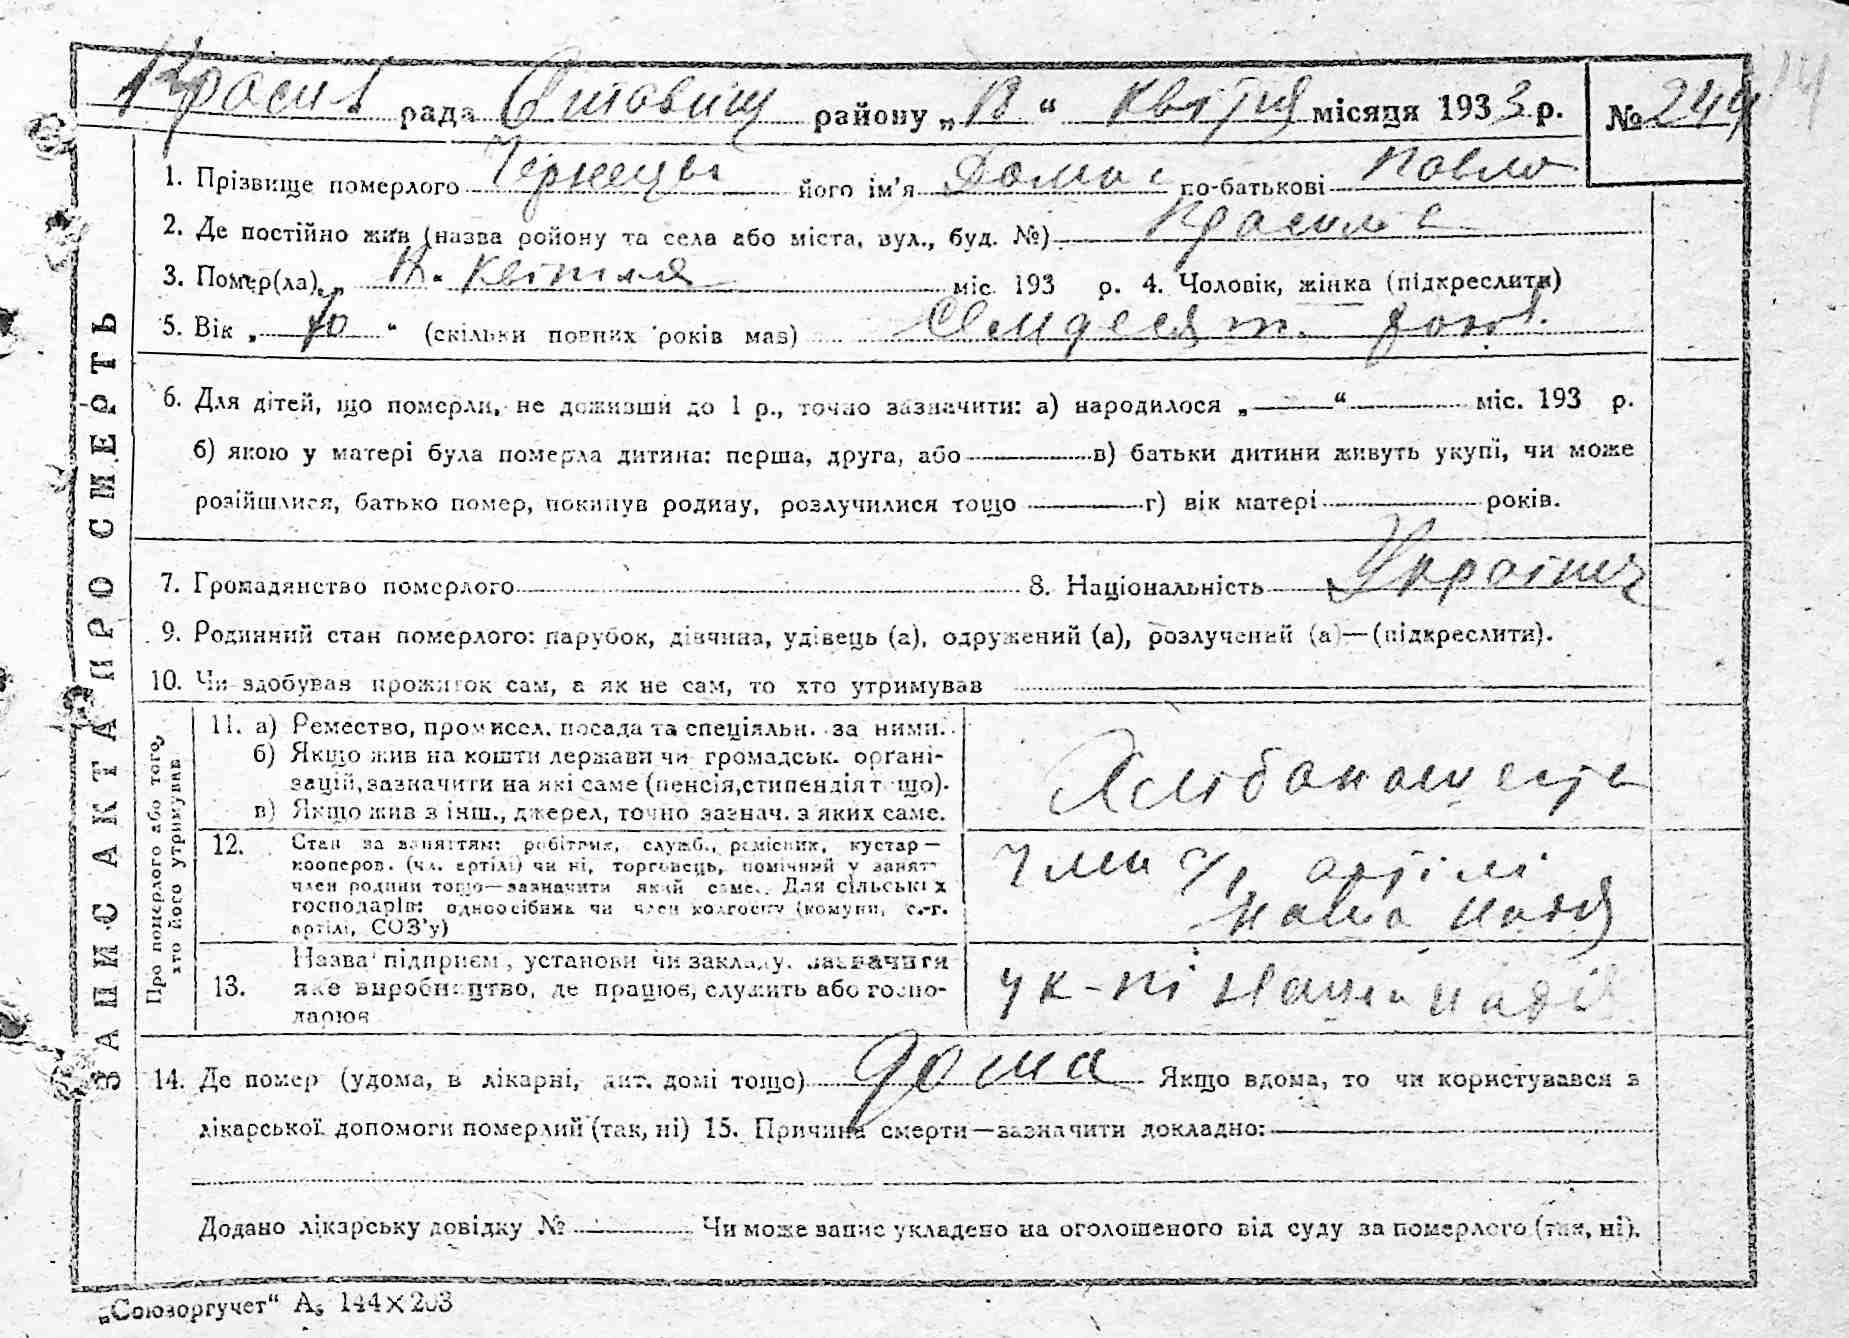 Красил рада району „13“ квітня місяця 1933 р. № 244
ЗАПИС АКТА ПРО СМЕРТЬ
1. Прізвище померлого Чернецы його ім'я по-батькові Павло
2. Де постійно жив (назва ройону та села або міста, вул., буд. №) Красилка
3. Помер(ла) „13“ квітня міс 193 р. 4. Чоловік, жінка (підкреслити)
5. Вік „70“ (скільки повних років мав) Семдесят
6. Для дітей, що померли, не доживши до 1 р., точно зазначити: а) народилося „ “ міс. 193 р.
б) якою у матері була померла дитина: перша, друга, або в) батьки дитини живуть укупі, чи може
розійшлися, батько помер, покинув родину, розлучилися тощо г) вік матері років.
7. Громадянство померлого 8. Національність
9. Родинний стан померлого: парубок, дівчина, удівець (а), одружений (а), розлучений (а)—(підкреслити).
10. Чи здобував прожиток сам, а як не сам, то хто утримував
Про померлого або того, хто його утримував
11. а) Ремество, промисел, посада та спеціяльн. за ними.
б) Якщо жив на кошти держави чи громадськ. органі-
зацій, зазначити на які саме (пенсія, стипендія т що).
в) Якщо жив з інш., джерел, точно зазнач. з яких саме.
12. Стан за заняттям: робітник, служб., ремісник, кустар—
кооперов. (чл. артілі) чи ні, торговець, помічний у занят.
член родини тощо—зазначити який саме. Для сільських
господарів: одноосібник чи член колгоспу (комуни, с.-г.
артілі, СОЗ'у)
член с/г артілі
наша надія
13. Назва підприєм., установи чи закладу, зазначити
яке виробництво, де працює, служить або госпо-
дарює
у к-пі Наша надія
14. Де помер (удома, в лікарні, дит. домі тощо) дома Якщо вдома, то чи користувався з
лікарської допомоги померлий (так, ні) 15. Причина смерти—зазначити докладно:
Додано лікарську довідку № Чи може запис укладено на оголошеного від суду за померлого (так, ні).
„Союзоргучет“ А5 144×203